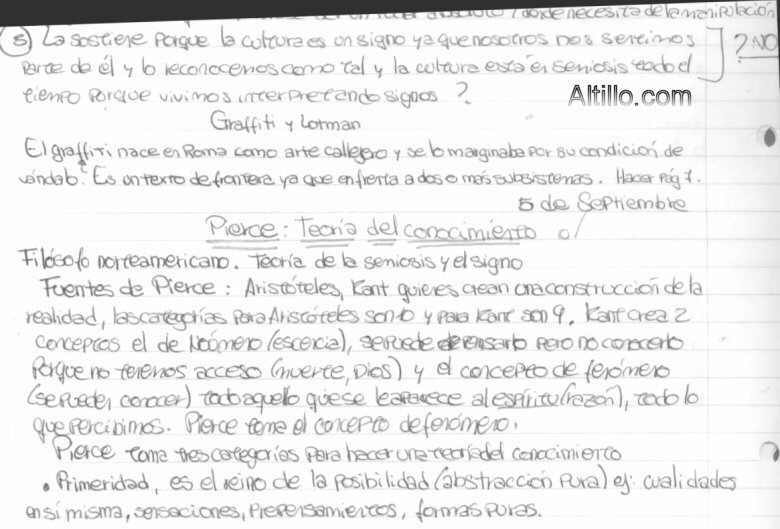 absoluto (donde necesita de la manipulación
5) La sostiene porque la cultura es un signo ya que nosotros nos sentimos ] ? NO
parte de él y lo reconocemos como tal y la cultura está en semiosis todo el
tiempo porque vivimos interpretando signos ?
Altillo.com
Graffiti y Lotman
El graffiti nace en Roma como arte callejero y se lo marginaba por su condición de
vándalo. Es un texto de frontera ya que enfrenta a dos o más subsistemas. Hacer pág 7.
5 de Septiembre
Pierce: Teoría del conocimiento
Filósofo norteamericano. Teoría de la semiosis y el signo
Fuentes de Pierce: Aristóteles, Kant quienes crean una construcción de la
realidad, las categorías para Aristóteles son 10 y para Kant son 9. Kant crea 2
conceptos el de Noúmeno (escencia), se puede pensarlo pero no conocerlo
porque no tenemos acceso (muerte, Dios) y el concepto de fenómeno
(se puede conocer) todo aquello que se le aparece al espíritu (razón), todo lo
que percibimos. Pierce toma el concepto de fenómeno.
Pierce toma tres categorías para hacer una teoría del conocimiento
• Primeridad, es el reino de la posibilidad (abstracción pura) ej: cualidades
en sí misma, sensaciones, prepensamientos, formas puras.